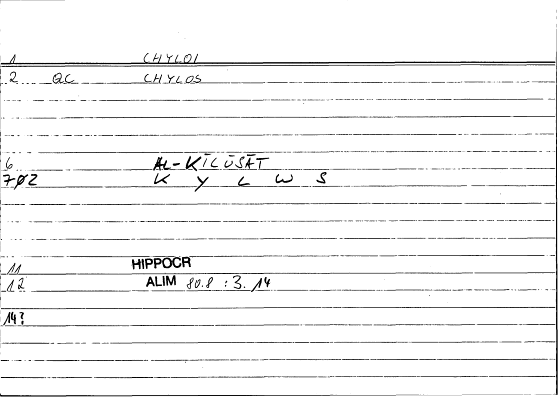 1 CHYLOI
2 QC CHYLOS
6 AL-KĪLŪSĀT
702 K Y L W S
11 HIPPOCR
12 ALIM 80.8 : 3.14
14?